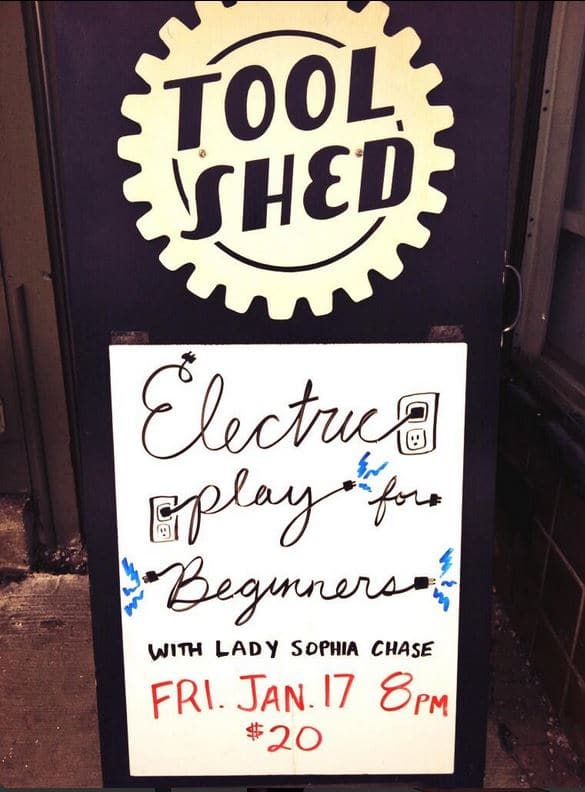 TOOL
SHED
Electric
play for
Beginners
WITH LADY SOPHIA CHASE
FRI. JAN. 17 8PM
$20